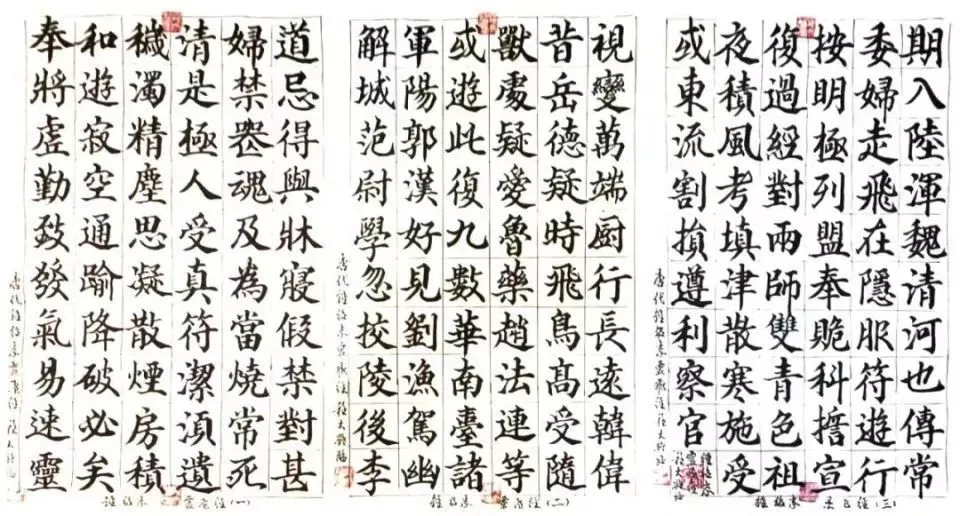 道忌得與牀寢假禁對甚
婦禁器魂及為當燒常死
清是極人受真符潔湏遺
穢濁精塵思凝散煙房積
和遊寂空通踰降破必矣
奉將虛勤致發氣易速靈
鍾紹京靈飛經(一)
視變萬端厨行長遠韓偉
昔岳德疑時飛鳥高受隨
獸處疑愛魯藥趙法連等
或遊此復九數華南臺諸
軍陽郭漢好見劉漁駕幽
解城范尉學忽校陵後李
鍾紹京靈飛經(二)
期入陸渾魏清河也傳常
委婦走飛在隱服符遊行
按明極列盟奉貺科宣
復過經對兩師雙青色祖
夜積風考填津散寒施受
或東流割損遵利察官
鍾紹京靈飛經(三)